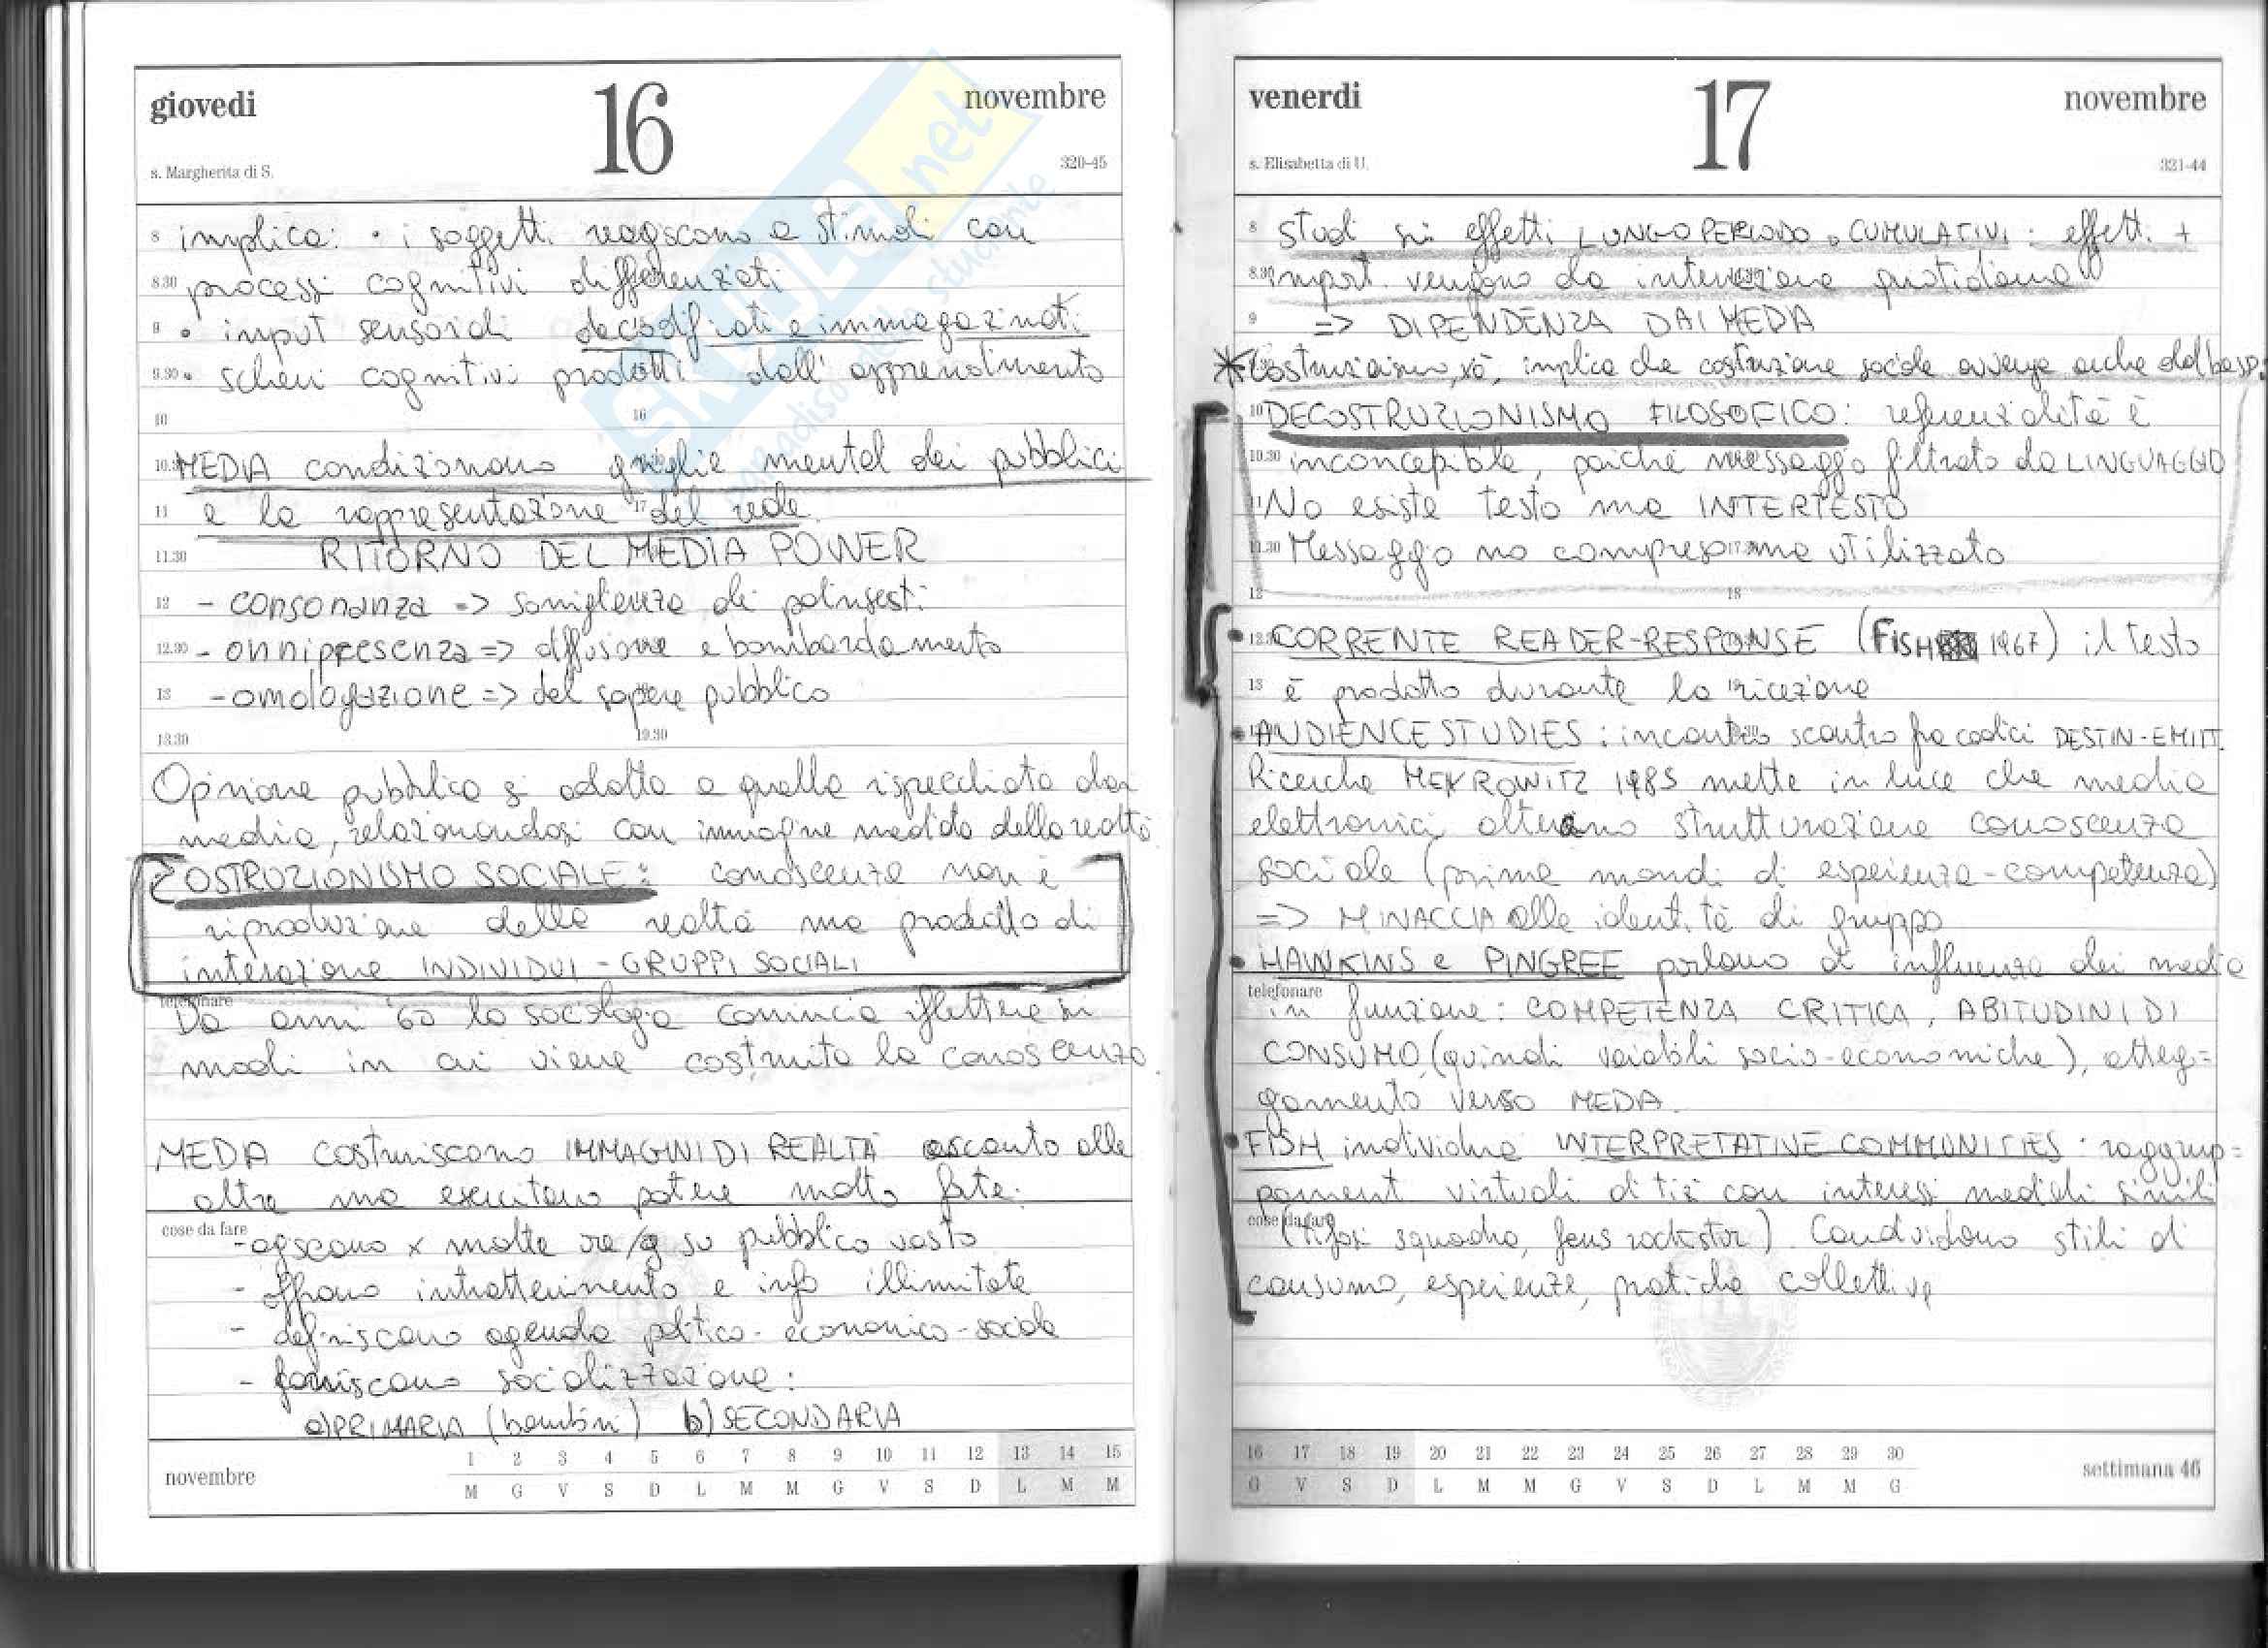 giovedì 16 novembre
s. Margherita di S. 320-45
8 implica: • i soggetti reagiscono a stimoli con
8.30 processi cognitivi differenziati
9 • input sensoriali decodificati e immagazzinati
9.30 • schemi cognitivi prodotti dall'apprendimento
10 16
10.30 MEDIA condizionano griglie mentali dei pubblici
11 e la rappresentazione 17 del reale.
11.30 RITORNO DEL MEDIA POWER
12 - consonanza => somiglianza di palinsesti
12.30 - onnipresenza => diffusione e bombardamento
13 - omologazione => del sapere pubblico
13.30 19.30
Opinione pubblica si adatta a quella rispecchiata dai
media, relazionandosi con immagine mediata della realtà
COSTRUZIONISMO SOCIALE: conoscenza non è
riproduzione della realtà ma prodotto di
interazione INDIVIDUI - GRUPPI SOCIALI
telefonare
Da anni '60 la sociologia comincia riflettere su
modi in cui viene costruita la conoscenza.
MEDIA costruiscono IMMAGINI DI REALTÀ accanto alle
altre ma esercitano potere molto forte:
cose da fare
- agiscono x molte ore/g su pubblico vasto
- offrono intrattenimento e info illimitate
- definiscono agenda politico-economico-sociale
- forniscono socializzazione:
a) PRIMARIA (bambini) b) SECONDARIA
novembre
1 2 3 4 5 6 7 8 9 10 11 12 13 14 15
M G V S D L M M G V S D L M M
venerdì 17 novembre
s. Elisabetta di U. 321-44
8 studi su effetti LUNGO PERIODO o CUMULATIVI: effetti +
8.30 import. vengono da interazione quotidiana
9 => DIPENDENZA DAI MEDIA
* Costruzionismo, xò, implica che costruzione sociale avvenga anche dal basso.
10 DECOSTRUZIONISMO FILOSOFICO: referenzialità è
10.30 inconcepibile, poiché messaggio filtrato da LINGUAGGIO
11 No esiste testo ma INTERTESTO
11.30 Messaggio no compreso ma utilizzato
12 18
• 12.30 CORRENTE READER-RESPONSE (FISH 1967) il testo
13 è prodotto durante la ricezione
• AUDIENCE STUDIES: incontro scontro fra codici DESTIN-EMITT.
Ricerche MEYROWITZ 1985 mette in luce che media
elettronici alterano strutturazione conoscenza
sociale (prima mondi di esperienza-competenza)
=> MINACCIA alle identità di gruppo
• HAWKINS e PINGREE parlano di influenza dei media
telefonare
in funzione: COMPETENZA CRITICA, ABITUDINI DI
CONSUMO (quindi variabili socio-economiche), atteg=
giamento verso MEDIA.
• FISH individua INTERPRETATIVE COMMUNITIES: raggrup=
pamenti virtuali di tizi con interessi mediali simili
cose da fare
(tifosi squadra, fans rockstar). Condividono stili di
consumo, esperienze, pratiche collettive
16 17 18 19 20 21 22 23 24 25 26 27 28 29 30
G V S D L M M G V S D L M M G
settimana 46
SKUOLA.net
paradiso dello studente